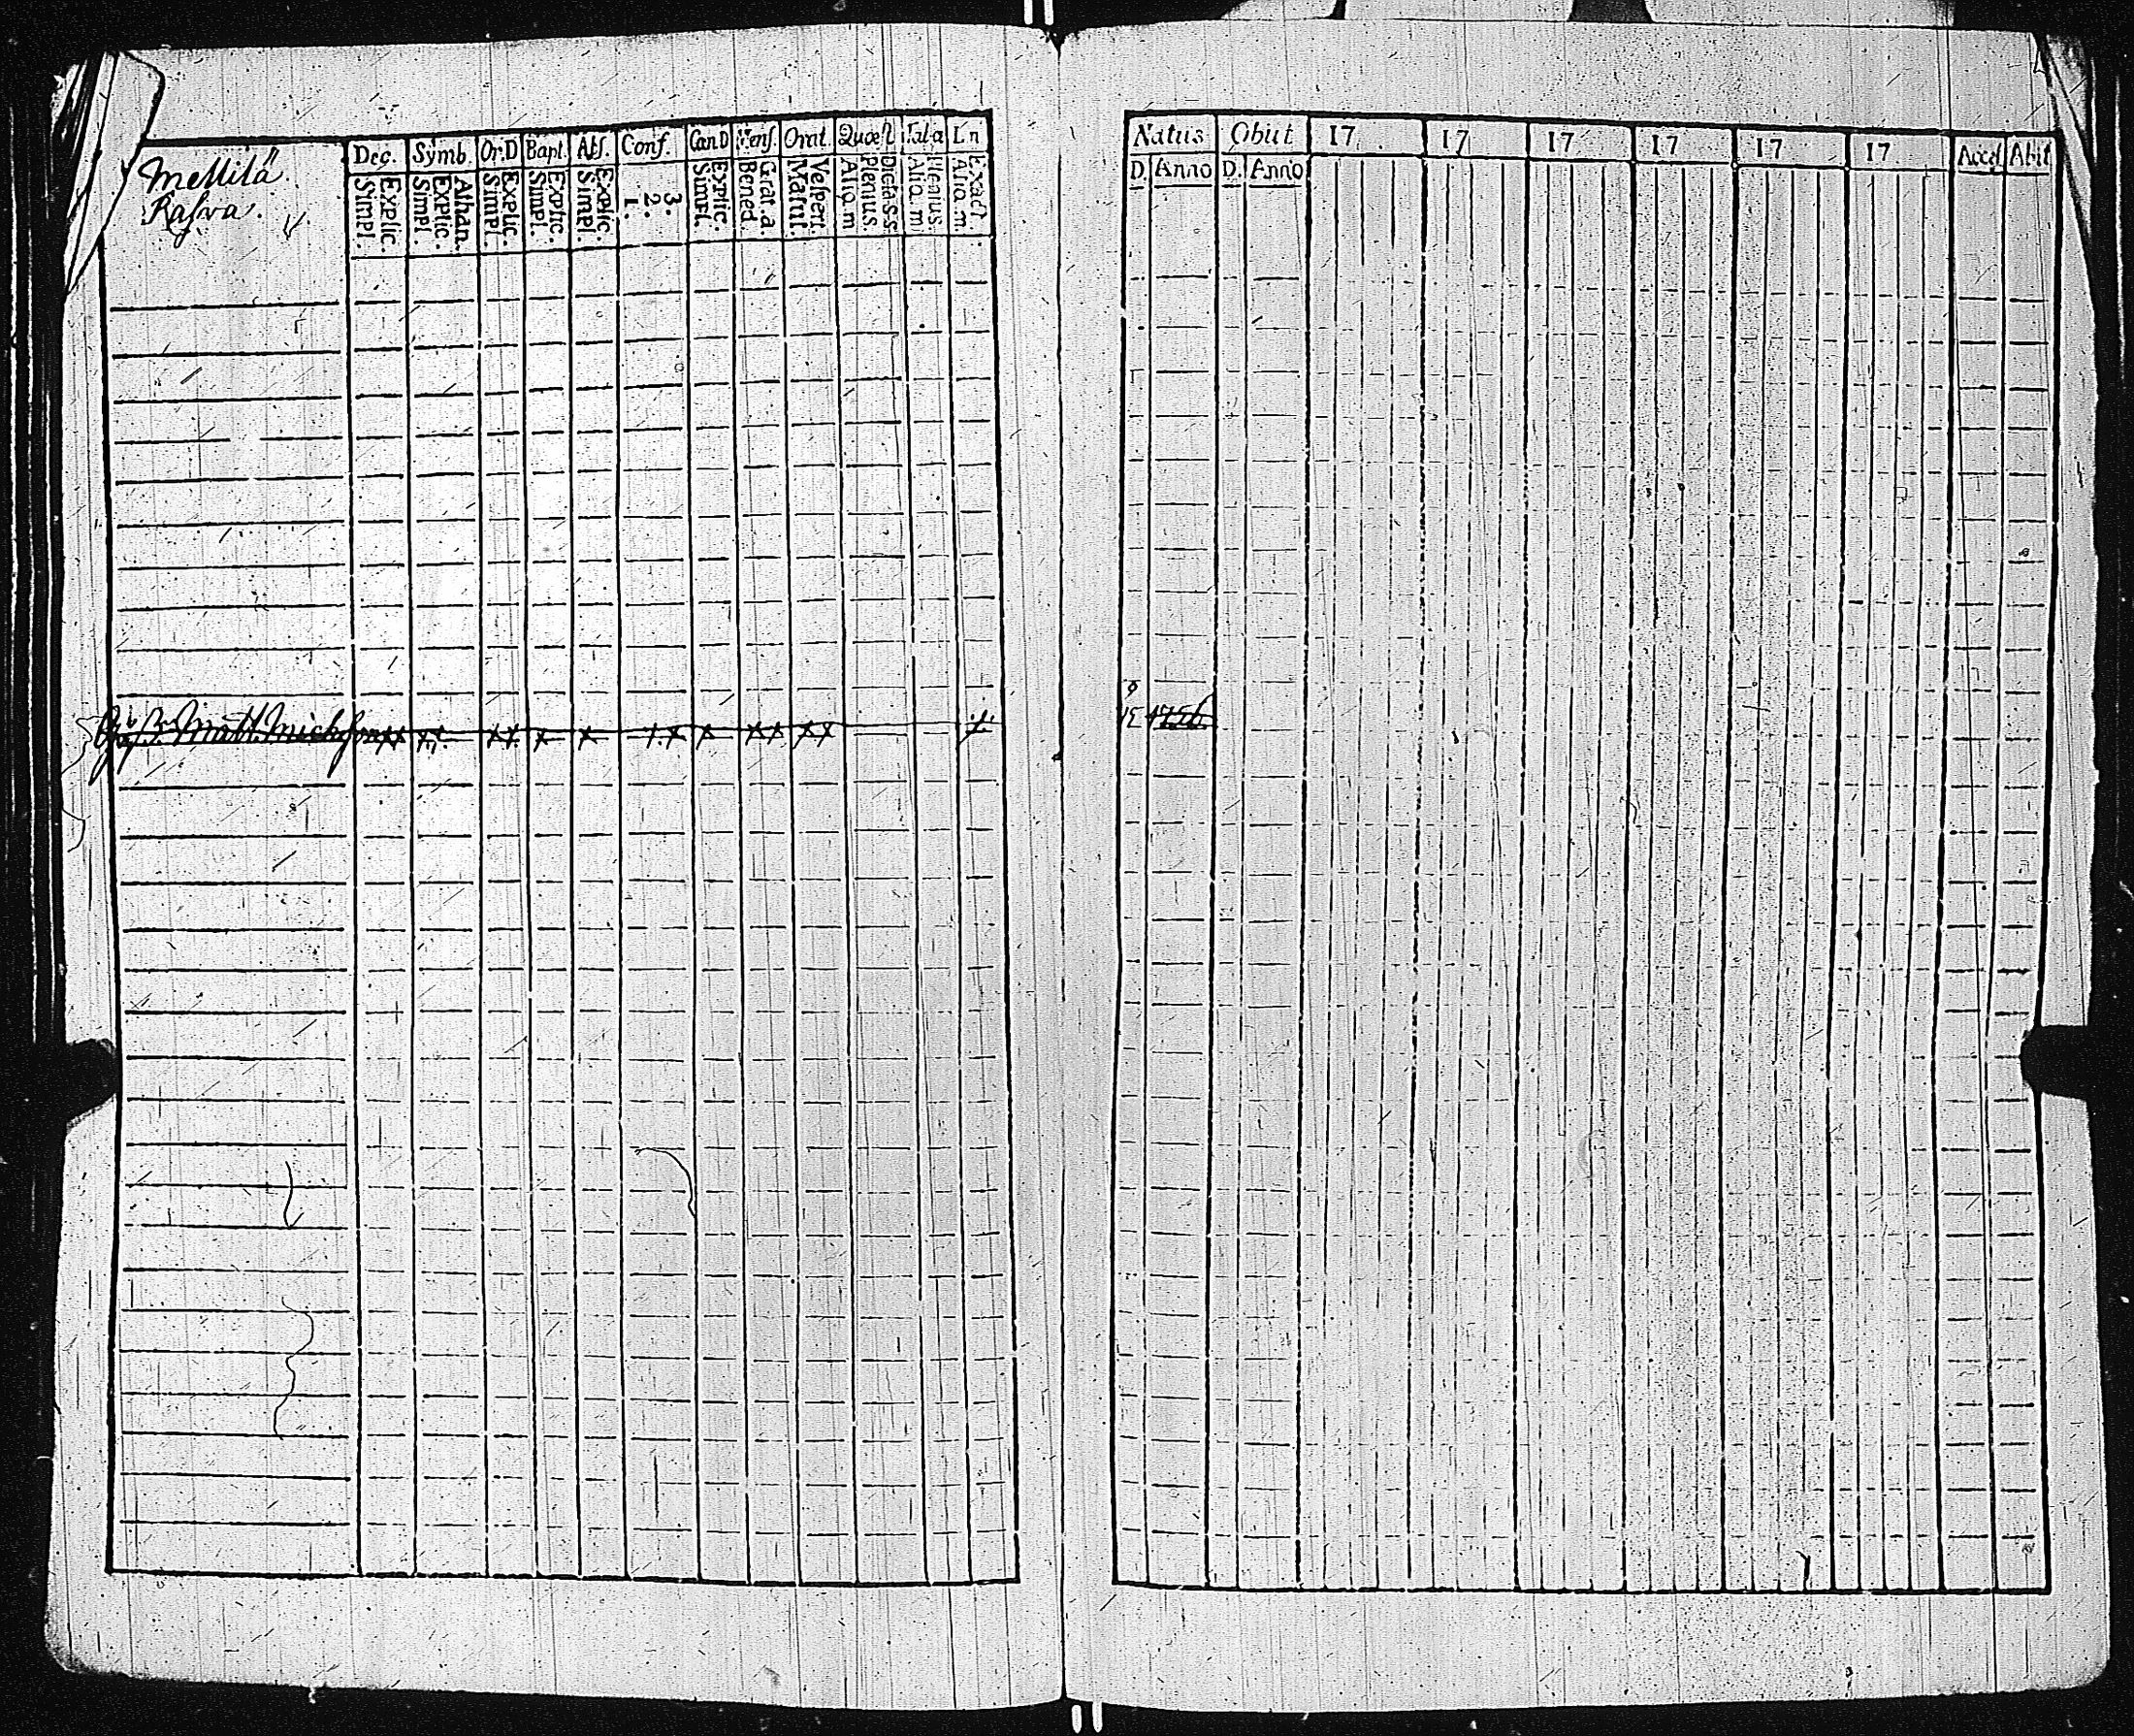 Mellilä
Rasva.
Dec. Symb. Or.D Bapt. Abs. Conf. Can D Mens. Orat. Quæst Tab.a In
Explic. Simpl. Athan. Explic. Simpl. Explic. Simpl. Explic. Simpl. Explic. Simpl. 3. 2. 1. Explic. Simpl. Grat. a Bened. Vespert. Matut. Dicta S.S. Plenius. Aliq. m Plenius. Aliq. m Exact Aliq. m.
Natus Obiit 17 17 17 17 17 17 Acces Abit
D. Anno D. Anno
Matt. Michelsson